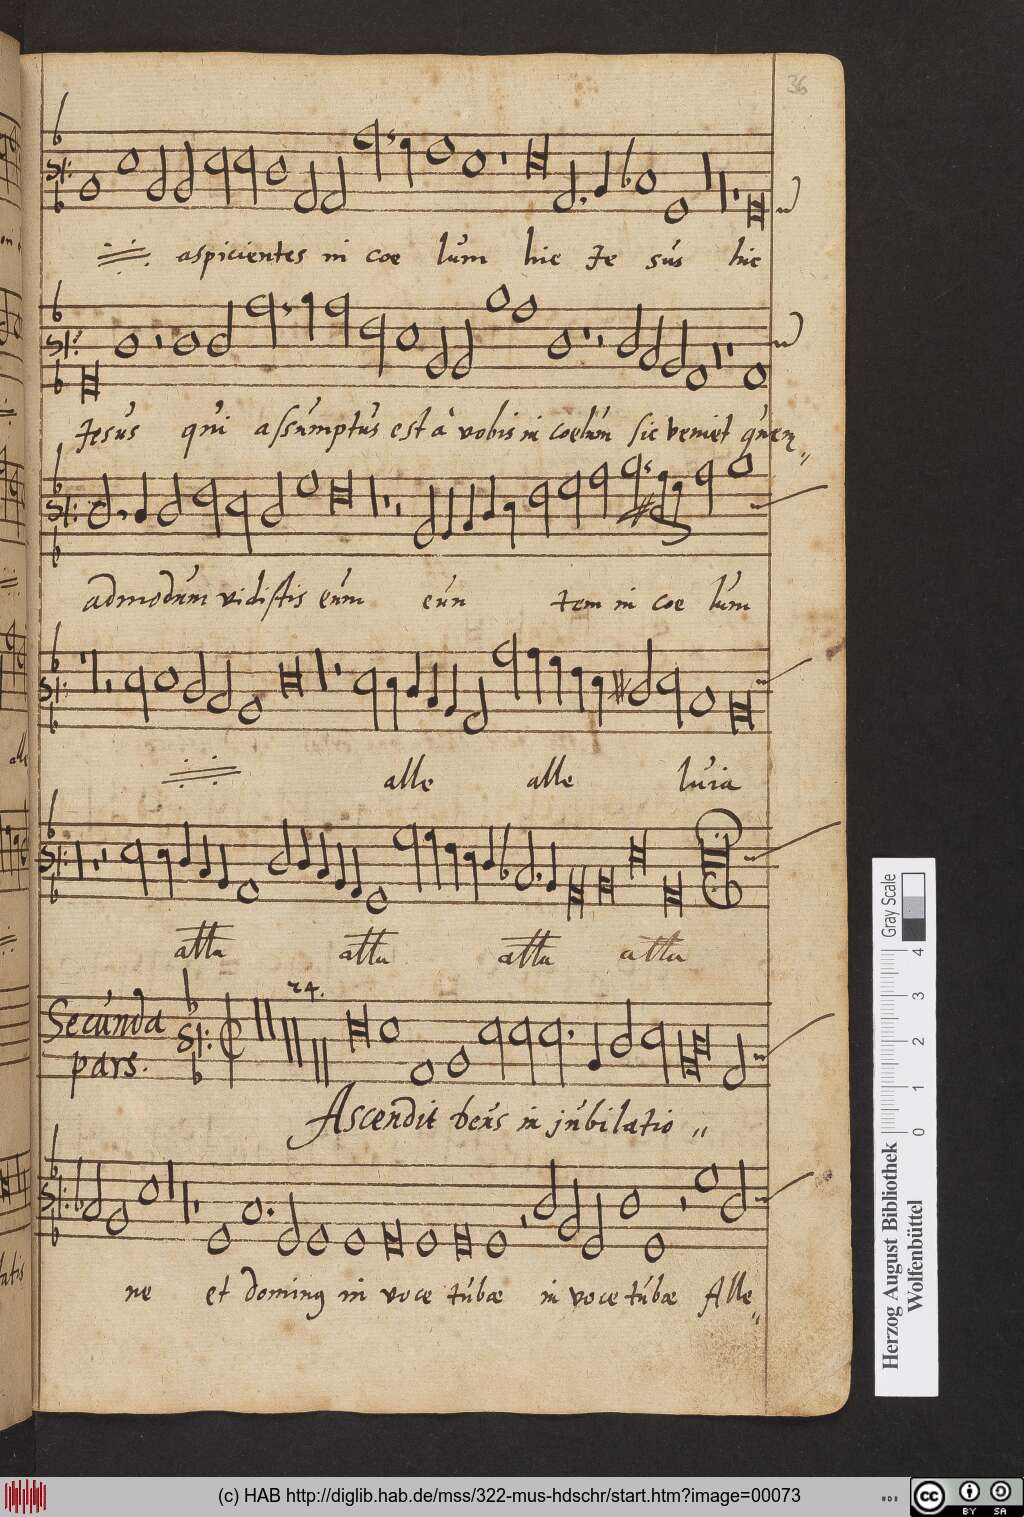 36
aspicientes in coe lum hic Je sus hic
Jesus qui assumptus est à vobis in coelum sic veniet quem
admodum vidistis eum eun tem in coe lum
alle alle luia
alla alla alla alla
Secunda
pars.
24.
Ascendit deus in jubilatio
ne et dominus in voce tubæ in voce tubæ Alle
Gray Scale
0 1 2 3 4
Herzog August Bibliothek
Wolfenbüttel
(c) HAB http://diglib.hab.de/mss/322-mus-hdschr/start.htm?image=00073
cc BY SA